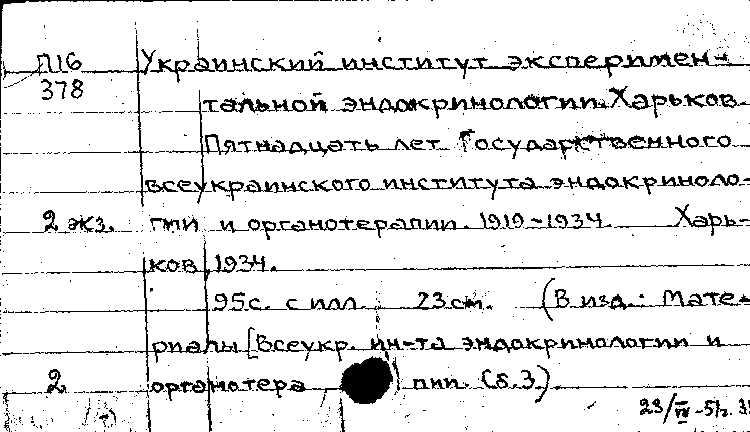 П16 Украинский институт эксперимен-
378 тальной эндокринологии. Харьков
Пятнадцать лет Государственного
всеукраинского института эндокриноло-
2 экз. гии и органотерапии. 1919-1934. Харь-
ков, 1934.
95с. с илл. 23см. (В изд.: Мате-
риалы [Всеукр. ин-та эндокринологии и
2 органотера пии. (в.3).
23/IV-51г.